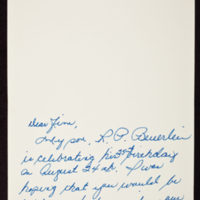 Dear Jim,
My son, R. P. Beuerlein
is celebrating his 3rd birthday
on August 24th. I was
hoping that you would be